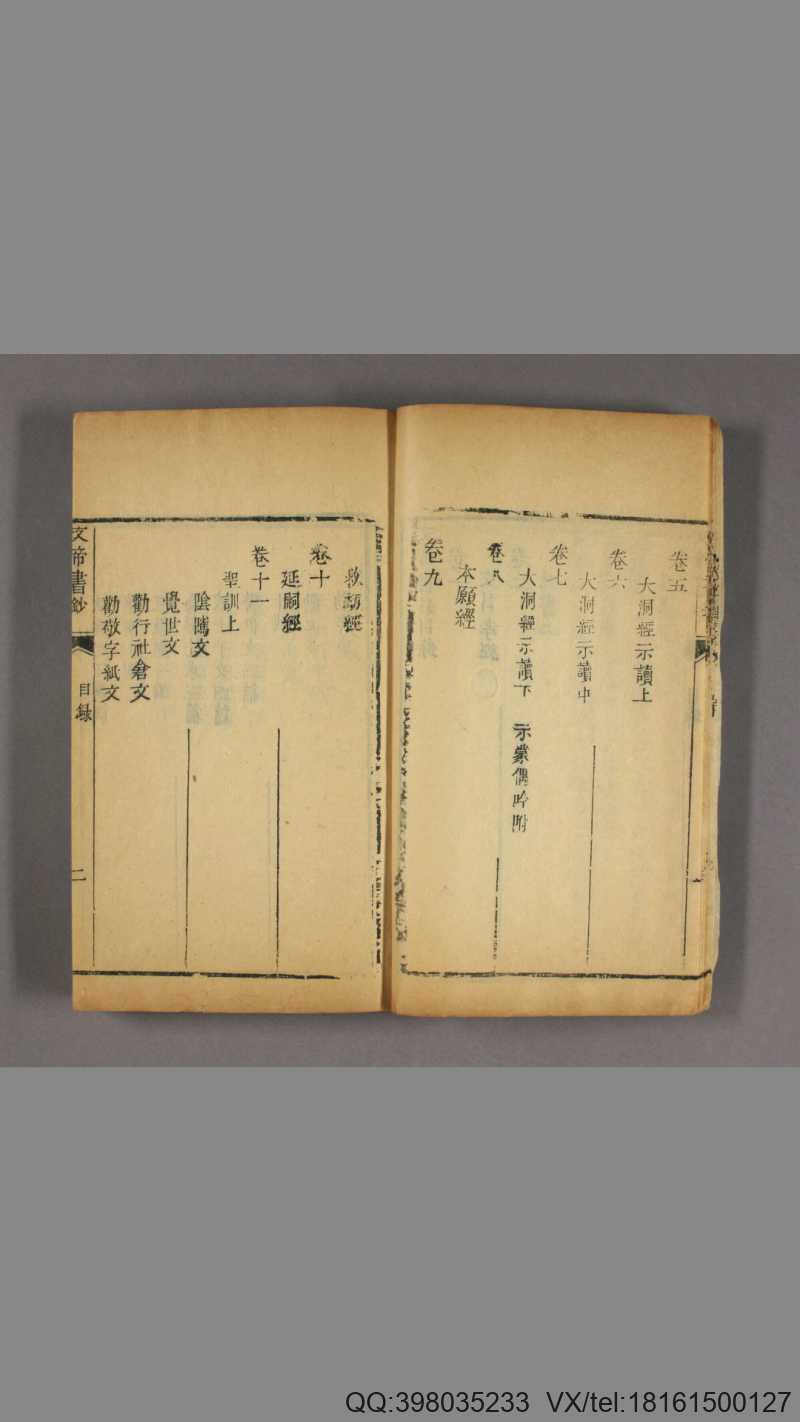 卷五
大洞經示讀上
卷六
大洞經示讀中
卷七
大洞經示讀下 示蒙偶吟附
卷八
本願經
卷九
救劫經
卷十
延嗣經
卷十一
聖訓上
陰騭文
覺世文
勸行社倉文
勸敬字紙文
文帝書鈔
目録
二
QQ:398035233 VX/tel:18161500127